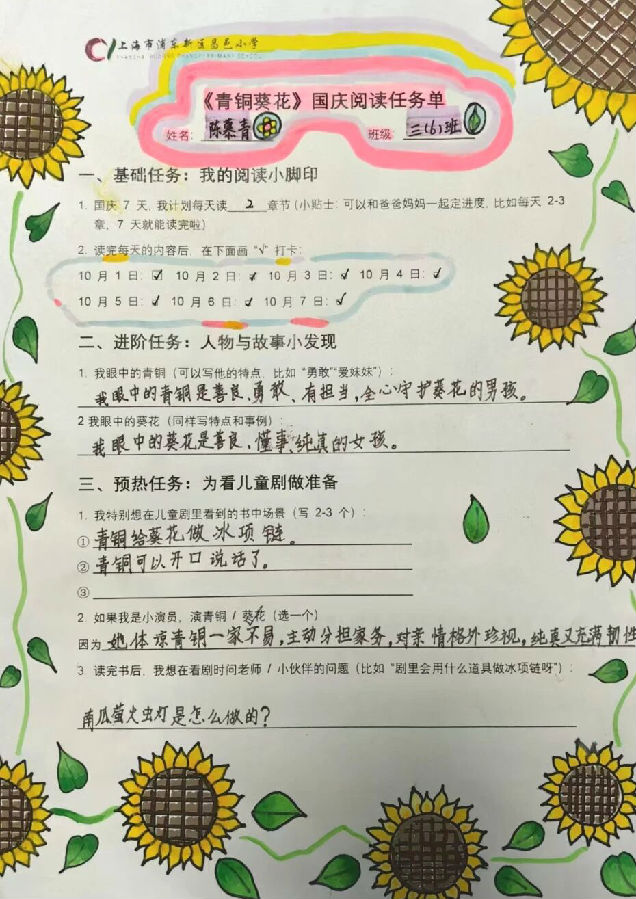 上海市浦东新区昌邑小学
《青铜葵花》国庆阅读任务单
姓名: 陈慕青 班级: 三(6)班
一、基础任务：我的阅读小脚印
1. 国庆 7 天, 我计划每天读 2 章节 (小贴士: 可以和爸爸妈妈一起定进度, 比如每天 2-3
章, 7 天就能读完啦)
2. 读完每天的内容后, 在下面画 “√” 打卡:
10 月 1 日: ☑ 10 月 2 日: √ 10 月 3 日: √ 10 月 4 日: √
10 月 5 日: √ 10 月 6 日: √ 10 月 7 日: √
二、进阶任务：人物与故事小发现
1. 我眼中的青铜 (可以写他的特点, 比如 “勇敢”“爱妹妹”) :
我眼中的青铜是善良、勇敢、有担当,全心守护葵花的男孩。
2 我眼中的葵花 (同样写特点和事例) :
我眼中的葵花是善良、懂事、纯真的女孩。
三、预热任务：为看儿童剧做准备
1. 我特别想在儿童剧里看到的书中场景 (写 2-3 个) :
① 青铜给葵花做冰项链。
② 青铜可以开口说话了。
③
2. 如果我是小演员, 演青铜 / 葵花 (选一个)
因为 她体谅青铜一家不易,主动分担家务,对亲情格外珍视,纯真又充满韧性
3. 读完书后, 我想在看剧时问老师 / 小伙伴的问题 (比如 “剧里会用什么道具做冰项链呀”) :
南瓜萤火虫灯是怎么做的?